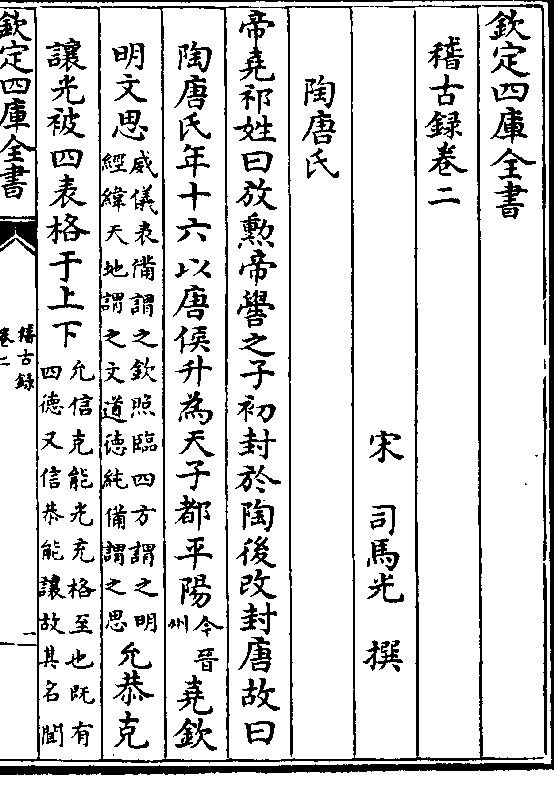 欽定四庫全書
稽古録卷二
宋 司馬光 撰
陶唐氏
帝堯祁姓曰放勲帝嚳之子初封於陶後改封唐故曰
陶唐氏年十六以唐侯升為天子都平陽今晉州堯欽
明文思威儀表備謂之欽照臨四方謂之明經緯天地謂之文道德純備謂之思允恭克
讓光被四表格于上下允信克能光充格至也既有四德又信恭能讓故其名聞
欽定四庫全書
稽古録
卷二
一